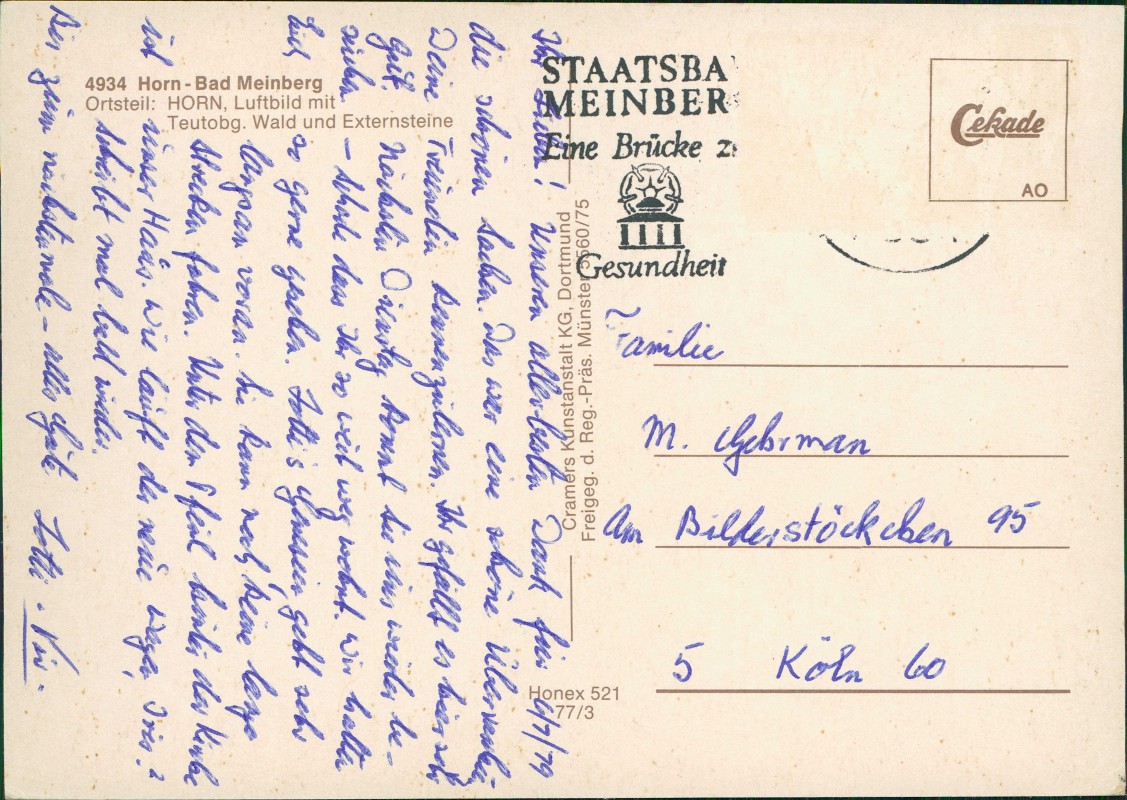 4934 Horn-Bad Meinberg
Ortsteil: HORN, Luftbild mit
Teutobg. Wald und Externsteine
STAATSBA
MEINBER
Eine Brücke z
Gesundheit
Cekade
AO
Cramers Kunstanstalt KG, Dortmund
Freigeg. d. Reg.-Präs. Münster 5560/75
Honex 521
77/3
6/7/79
Ihr Lieben! Unseren allerbesten Dank für
die schönen Sachen. Das war eine schöne
Deine Freundin kennenzulernen. Ihr gefällt es hier sehr
gut. Nächsten Dienstag kommt sie uns wieder be-
suchen – schade dass Ihr so weit weg wohnt. Wir hätten
Euch so gerne gesehen. Lotti's geht sehr
langsam voran. Sie kann noch keine lange
Strecken fahren. Unter dem Pfeil hinter der Kirche
ist unser Haus. Wie läuft der neue Wagen,
Schreibt mal bald wieder.
Bis zum nächstenmale – alles Gute Lotti
Familie
M. Gehrman
Am Bilderstöckchen 95
5 Köln 60